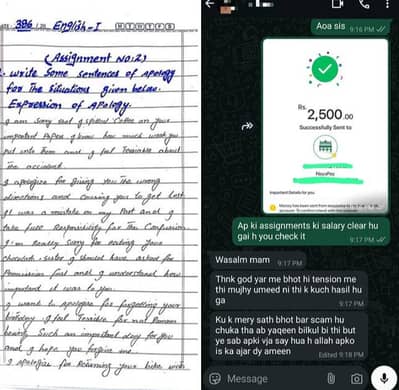 386 /20 English-I
(Assignment NO:2)
write Some sentences of apology
for The Situations given below.
Expression of Apology.
I am Sorry that I spilled Coffee on your
important Paper I know how much work you
put into them and I feel Terriable about
The accident.
I apologize for giving you The wrong
directions and causing you to get Lost
It was a mistake on my Part and I
take full Responsibility for The Confusion
I'm Really Sorry for eating your
chocolate sister I should have asked for
Permission first and I understand how
important it was to you.
I want to apologize for forgetting your
birthday I feel Terriable for not Remem
bering Such an important day for you
and I hope you forgive me.
I apologize for Returning your bike with
Aoa sis 9:16 PM
Rs.
2,500.00
Successfully Sent to
NayaPay
Important Details for you
Ap ki assignments ki salary clear hu
gai h you check it
9:17 PM
Wasalm mam 9:17 PM
Thnk god yar me bhot hi tension me
thi mujhy umeed ni thi k kuch hasil hu
ga 9:17 PM
Ku k mery sath bhot bar scam hu
chuka tha ab yaqeen bilkul bi thi but
ye sab apki vja say hua h allah apko
is ka ajar dy ameen Edited 9:18 PM
Message